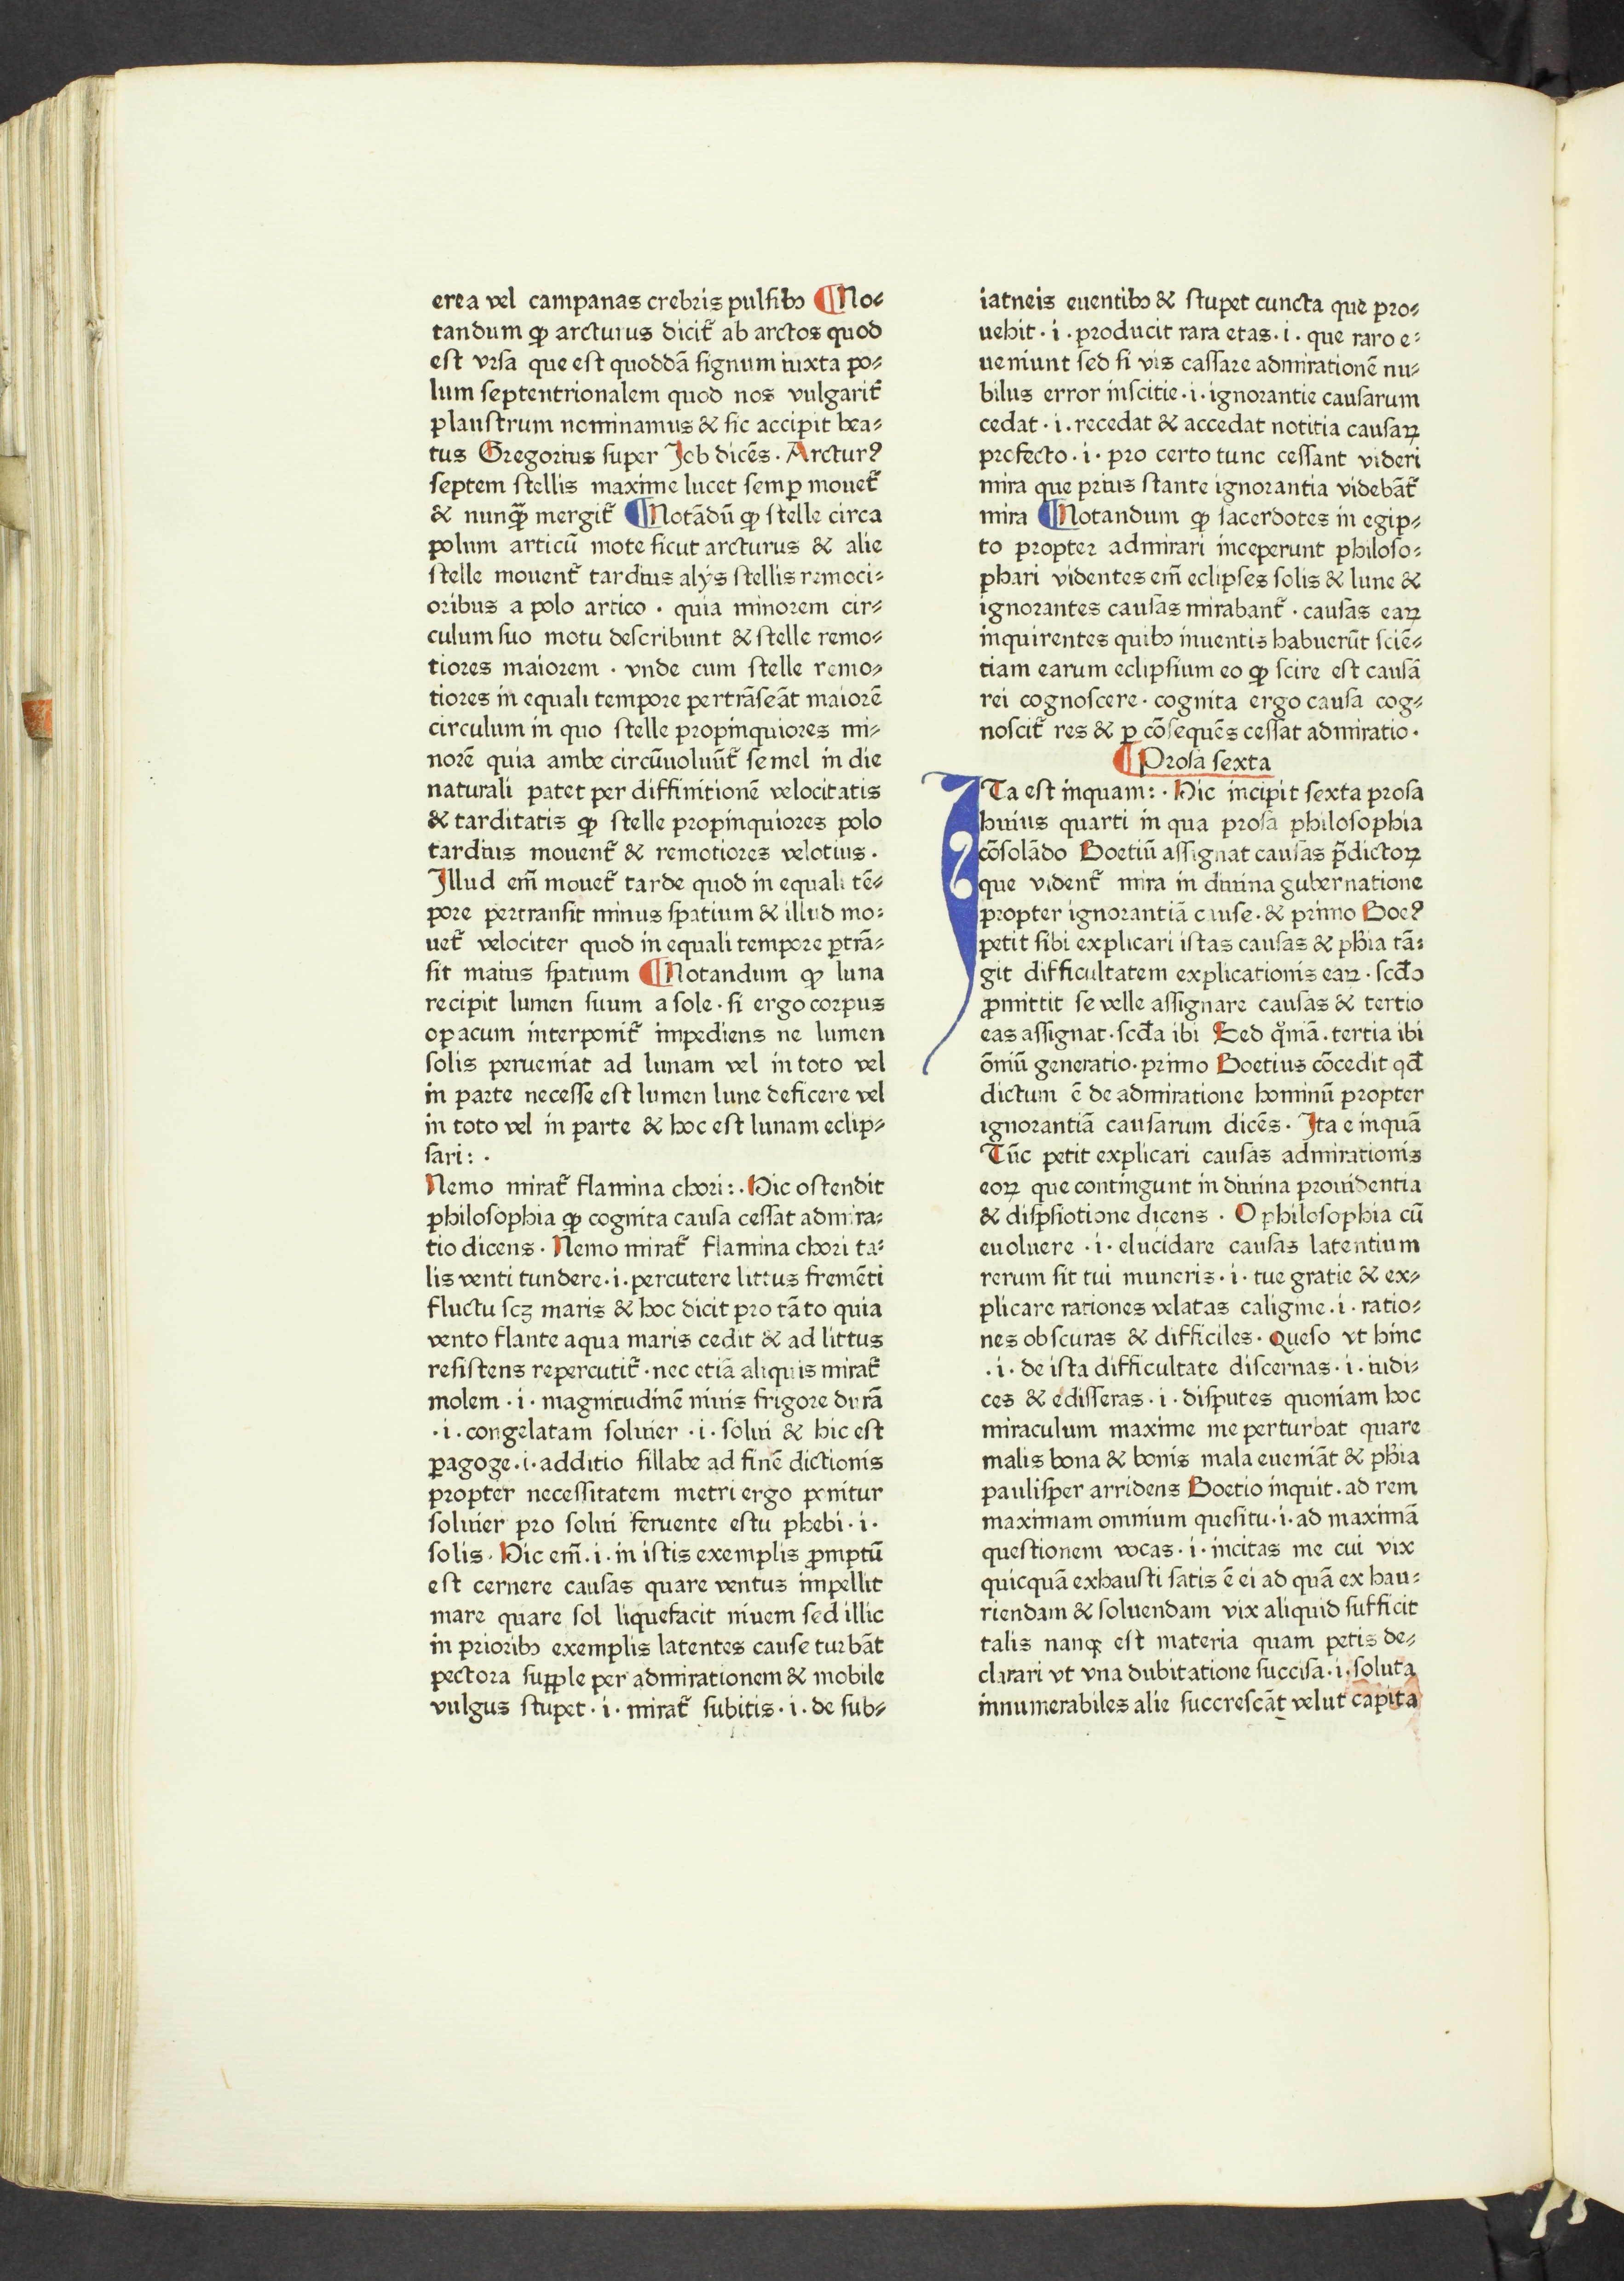 erea vel campanas crebris pulsibꝫ ¶ No⸗
tandum ꝙ arcturus dicit᷑ ab arctos quod
est vrsa que est quoddā signum iuxta po⸗
lum septentrionalem quod nos vulgarit᷑
plaustrum nominamus & sic accipit bea⸗
tus Gregorius super Job dicēs · Arcturꝰ
septem stellis maxime lucet semꝑ mouet᷑
& nunꝙ̄ mergit᷑ ¶ Notādū ꝙ stelle circa
polum articū mote sicut arcturus & alie
stelle mouent᷑ tardius alys stellis remoci⸗
oribus a polo artico · quia minorem cir⸗
culum suo motu describunt & stelle remo⸗
tiores maiorem · vnde cum stelle remo⸗
tiores in equali tempore pertrāseāt maiorē
circulum in quo stelle propinquiores mi⸗
norē quia ambe circūuoluūt᷑ semel in die
naturali patet per diffinitionē velocitatis
& tarditatis ꝙ stelle propinquiores polo
tardius mouent᷑ & remotiores velotius ·
Jllud em̄ mouet᷑ tarde quod in equali tē⸗
pore pertransit minus spatium & illud mo⸗
uet᷑ velociter quod in equali tempore ꝑtrā⸗
sit maius spatium ¶ Notandum ꝙ luna
recipit lumen suum a sole · si ergo corpus
opacum interponit᷑ impediens ne lumen
solis perueniat ad lunam vel in toto vel
in parte necesse est lumen lune deficere vel
in toto vel in parte & hoc est lunam eclip⸗
sari : ·
Nemo mirat᷑ flamina chori : · Hic ostendit
philosophia ꝙ cognita causa cessat admira⸗
tio dicens · Nemo mirat᷑ flamina chori ta⸗
lis venti tundere · i · percutere littus fremēti
fluctu scꝫ maris & hoc dicit pro tāto quia
vento flante aqua maris cedit & ad littus
resistens repercutit᷑ · nec etiā aliquis mirat᷑
molem · i · magnitudinē niuis frigore durā
· i · congelatam soluier · i · solui & hic est
ꝑagoge · i · additio sillabe ad finē dictionis
propter necessitatem metri ergo ponitur
soluier pro solui feruente estu phebi · i ·
solis · Hic em̄ · i · in istis exemplis ꝓmptū
est cernere causas quare ventus impellit
mare quare sol liquefacit niuem sed illic
in prioribꝫ exemplis latentes cause turbāt
pectora supple per admirationem & mobile
vulgus stupet · i · mirat᷑ subitis · i · de sub⸗
iatneis euentibꝫ & stupet cuncta que pro⸗
uehit · i · producit rara etas · i · que raro e⸗
ueniunt sed si vis cassare admirationē nu⸗
bilus error inscitie · i · ignorantie causarum
cedat · i · recedat & accedat notitia causaꝝ
profecto · i · pro certo tunc cessant videri
mira que prius stante ignorantia videbāt᷑
mira ¶ Notandum ꝙ sacerdotes in egip⸗
to propter admirari inceperunt philoso⸗
phari videntes em̄ eclipses solis & lune &
ignorantes causas mirabant᷑ · causas eaꝝ
inquirentes quibꝫ inuentis habuerūt sciē⸗
tiam earum eclipsium eo ꝙ scire est causā
rei cognoscere · cognita ergo causa cog⸗
noscit᷑ res & ꝑ cōsequēs cessat admiratio ·
¶ Prosa sexta
JTa est inquam : · Hic incipit sexta prosa
huius quarti in qua prosa philosophia
cōsolādo Boetiū assignat causas p̄dictoꝝ
que vident᷑ mira in diuina gubernatione
propter ignorantiā cause · & primo Boeꝰ
petit sibi explicari istas causas & ph̄ia tā⸗
git difficultatem explicationis eaꝝ · scd̄o
ꝓmittit se velle assignare causas & tertio
eas assignat · scd̄a ibi Sed qm̄iā · tertia ibi
ōmiū generatio · primo Boetius cōcedit qd̄
dictum ē de admiratione hominū propter
ignorantiā causarum dicēs · Jta e inquā
Tūc petit explicari causas admirationis
eoꝝ que contingunt in diuina prouidentia
& dispsiotione dicens · O philosophia cū
euoluere · i · elucidare causas latentium
rerum sit tui muneris · i · tue gratie & ex⸗
plicare rationes velatas caligine · i · ratio⸗
nes obscuras & difficiles · Queso vt hinc
· i · de ista difficultate discernas · i · iudi⸗
ces & edisseras · i · disputes quoniam hoc
miraculum maxime me perturbat quare
malis bona & bonis mala eueniāt & ph̄ia
paulisper arridens Boetio inquit · ad rem
maximam omnium quesitu · i · ad maximā
questionem vocas · i · incitas me cui vix
quicquā exhausti satis ē ei ad quā exhau⸗
riendam & soluendam vix aliquid sufficit
talis nanqꝫ est materia quam petis de⸗
clarari vt vna dubitatione succisa · i · soluta
innumerabiles alie succrescāt velut capita